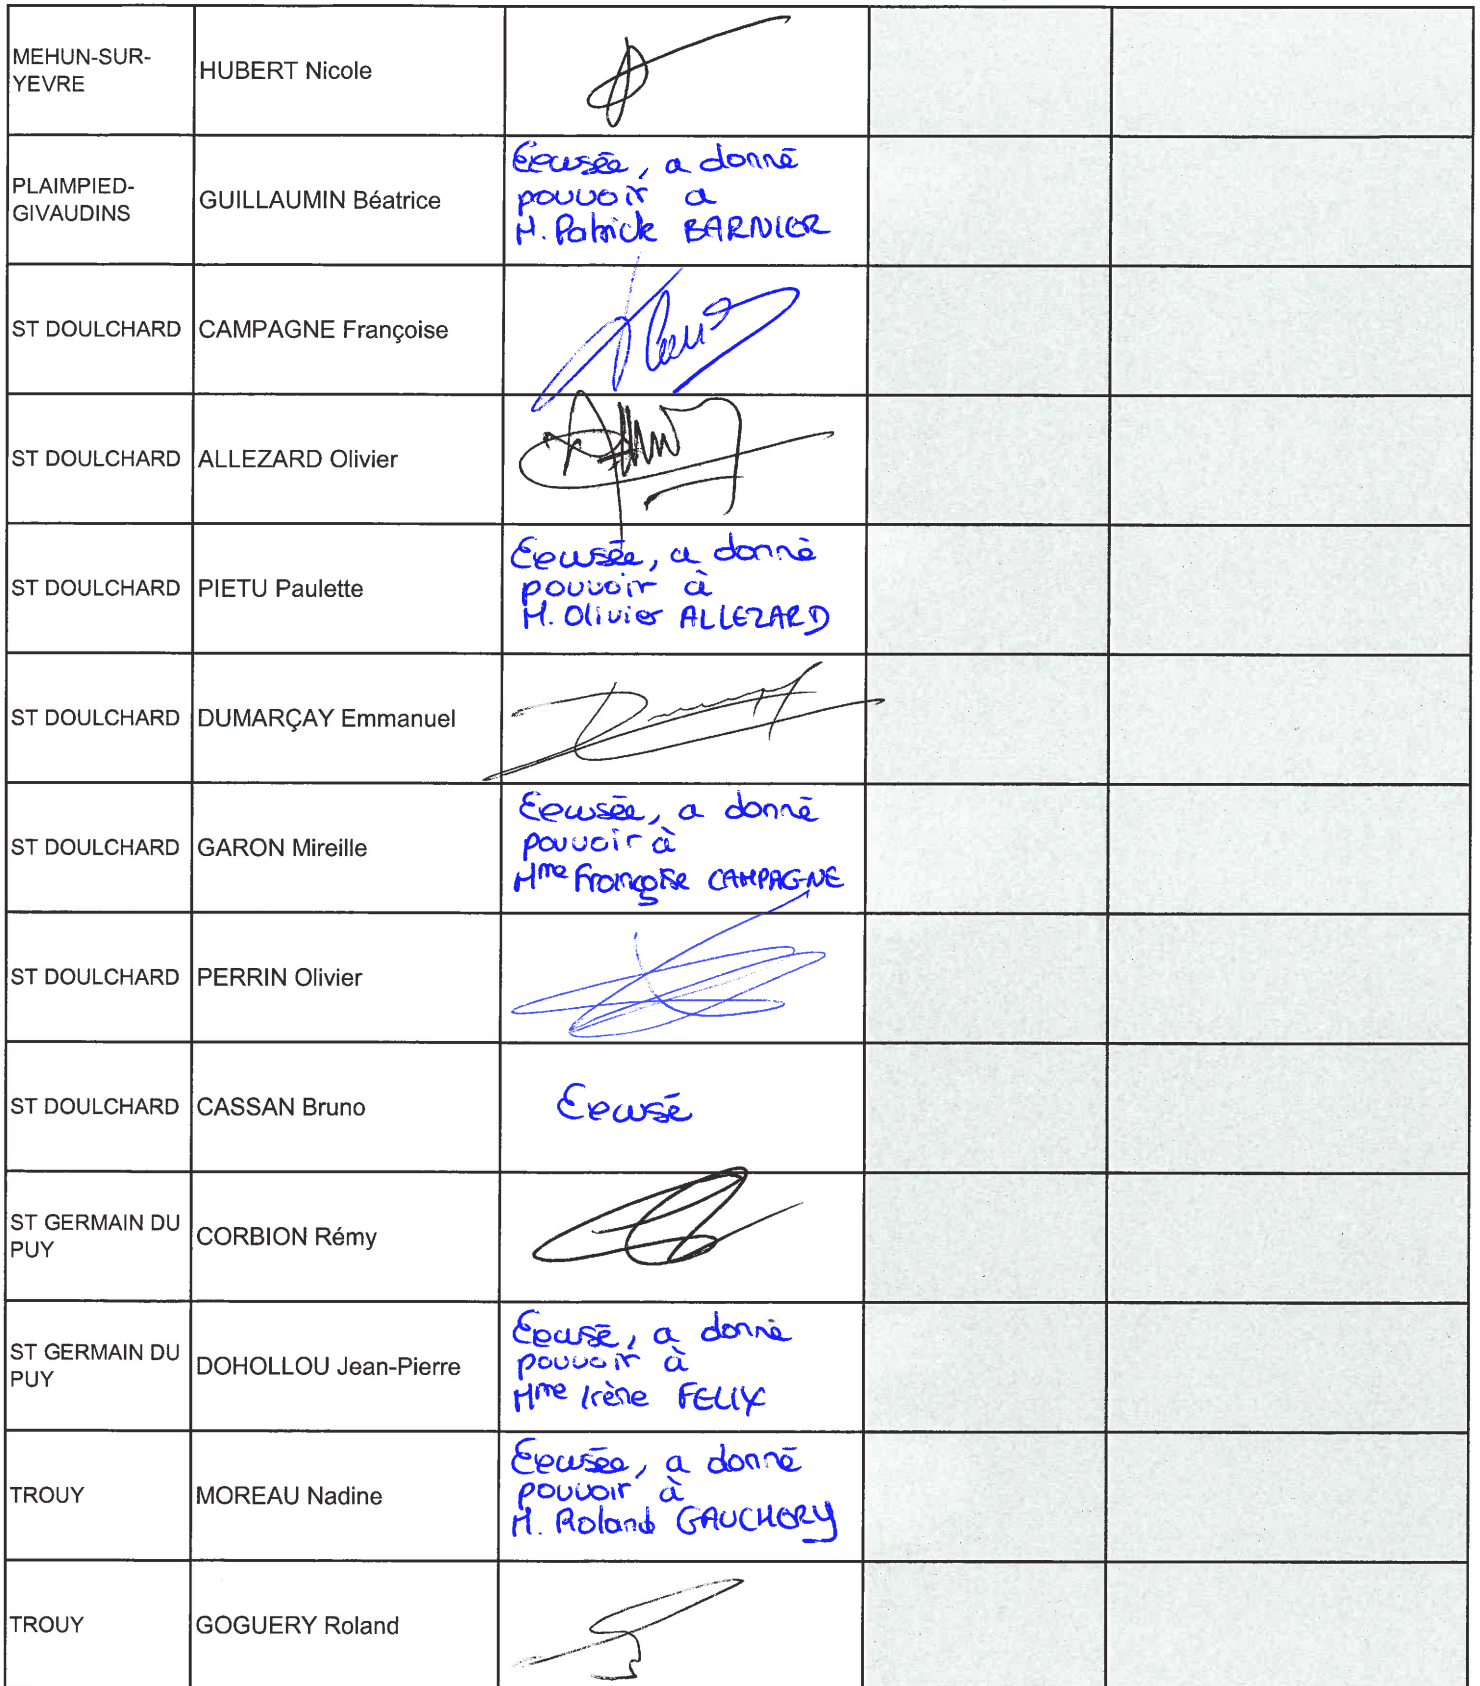 MEHUN-SUR-
YEVRE
HUBERT Nicole
PLAIMPIED-
GIVAUDINS
GUILLAUMIN Béatrice
Excusée, a donné
pouvoir a
M. Patrick BARNIER
ST DOULCHARD
CAMPAGNE Françoise
ST DOULCHARD
ALLEZARD Olivier
ST DOULCHARD
PIETU Paulette
Excusée, a donné
pouvoir à
M. Olivier ALLEZARD
ST DOULCHARD
DUMARÇAY Emmanuel
ST DOULCHARD
GARON Mireille
Excusée, a donné
pouvoir à
Mme Françoise CAMPAGNE
ST DOULCHARD
PERRIN Olivier
ST DOULCHARD
CASSAN Bruno
Excusé
ST GERMAIN DU
PUY
CORBION Rémy
ST GERMAIN DU
PUY
DOHOLLOU Jean-Pierre
Excusé, a donné
pouvoir à
Mme Irène FELIX
TROUY
MOREAU Nadine
Excusée, a donné
pouvoir à
M. Roland GAUCHERY
TROUY
GOGUERY Roland